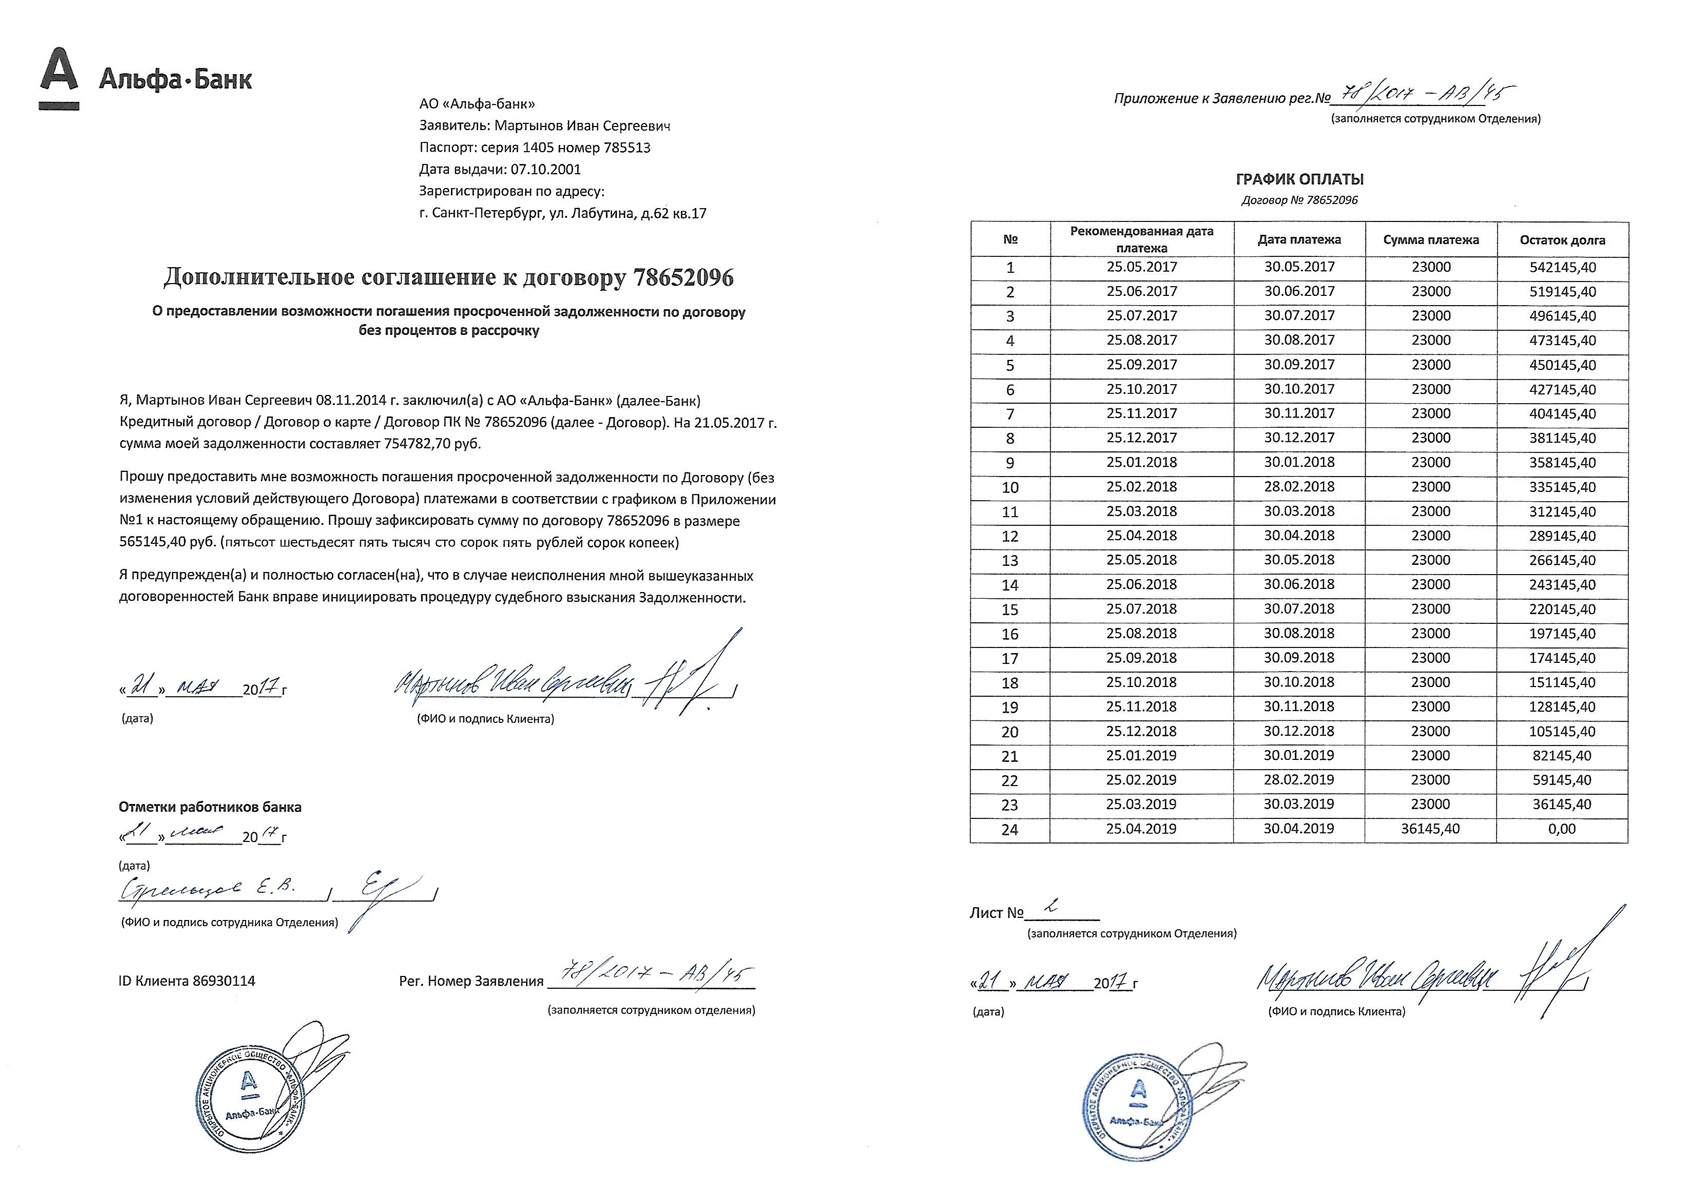 А
Альфа·Банк
АО «Альфа-банк»
Заявитель: Мартынов Иван Сергеевич
Паспорт: серия 1405 номер 785513
Дата выдачи: 07.10.2001
Зарегистрирован по адресу:
г. Санкт-Петербург, ул. Лабутина, д.62 кв.17
Дополнительное соглашение к договору 78652096
О предоставлении возможности погашения просроченной задолженности по договору
без процентов в рассрочку
Я, Мартынов Иван Сергеевич 08.11.2014 г. заключил(а) с АО «Альфа-Банк» (далее-Банк)
Кредитный договор / Договор о карте / Договор ПК № 78652096 (далее - Договор). На 21.05.2017 г.
сумма моей задолженности составляет 754782,70 руб.
Прошу предоставить мне возможность погашения просроченной задолженности по Договору (без
изменения условий действующего Договора) платежами в соответствии с графиком в Приложении
№1 к настоящему обращению. Прошу зафиксировать сумму по договору 78652096 в размере
565145,40 руб. (пятьсот шестьдесят пять тысяч сто сорок пять рублей сорок копеек)
Я предупрежден(а) и полностью согласен(на), что в случае неисполнения мной вышеуказанных
договоренностей Банк вправе инициировать процедуру судебного взыскания Задолженности.
«21» мая 2017г Мартынов Иван Сергеевич
(дата) (ФИО и подпись Клиента)
Отметки работников банка
«21» мая 2017г
(дата)
Стрельцов Е.В.
(ФИО и подпись сотрудника Отделения)
ID Клиента 86930114 Рег. Номер Заявления 78/2017 – АВ/45
(заполняется сотрудником отделения)
ОТКРЫТОЕ АКЦИОНЕРНОЕ ОБЩЕСТВО «АЛЬФА-БАНК»
А
Альфа-Банк
Приложение к Заявлению рег.№ 78/2017 – АВ/45
(заполняется сотрудником Отделения)
ГРАФИК ОПЛАТЫ
Договор № 78652096
№ Рекомендованная дата платежа Дата платежа Сумма платежа Остаток долга
1 25.05.2017 30.05.2017 23000 542145,40
2 25.06.2017 30.06.2017 23000 519145,40
3 25.07.2017 30.07.2017 23000 496145,40
4 25.08.2017 30.08.2017 23000 473145,40
5 25.09.2017 30.09.2017 23000 450145,40
6 25.10.2017 30.10.2017 23000 427145,40
7 25.11.2017 30.11.2017 23000 404145,40
8 25.12.2017 30.12.2017 23000 381145,40
9 25.01.2018 30.01.2018 23000 358145,40
10 25.02.2018 28.02.2018 23000 335145,40
11 25.03.2018 30.03.2018 23000 312145,40
12 25.04.2018 30.04.2018 23000 289145,40
13 25.05.2018 30.05.2018 23000 266145,40
14 25.06.2018 30.06.2018 23000 243145,40
15 25.07.2018 30.07.2018 23000 220145,40
16 25.08.2018 30.08.2018 23000 197145,40
17 25.09.2018 30.09.2018 23000 174145,40
18 25.10.2018 30.10.2018 23000 151145,40
19 25.11.2018 30.11.2018 23000 128145,40
20 25.12.2018 30.12.2018 23000 105145,40
21 25.01.2019 30.01.2019 23000 82145,40
22 25.02.2019 28.02.2019 23000 59145,40
23 25.03.2019 30.03.2019 23000 36145,40
24 25.04.2019 30.04.2019 36145,40 0,00
Лист № 2
(заполняется сотрудником Отделения)
«21» мая 2017г Мартынов Иван Сергеевич
(дата) (ФИО и подпись Клиента)
ОТКРЫТОЕ АКЦИОНЕРНОЕ ОБЩЕСТВО «АЛЬФА-БАНК»
А
Альфа-Банк